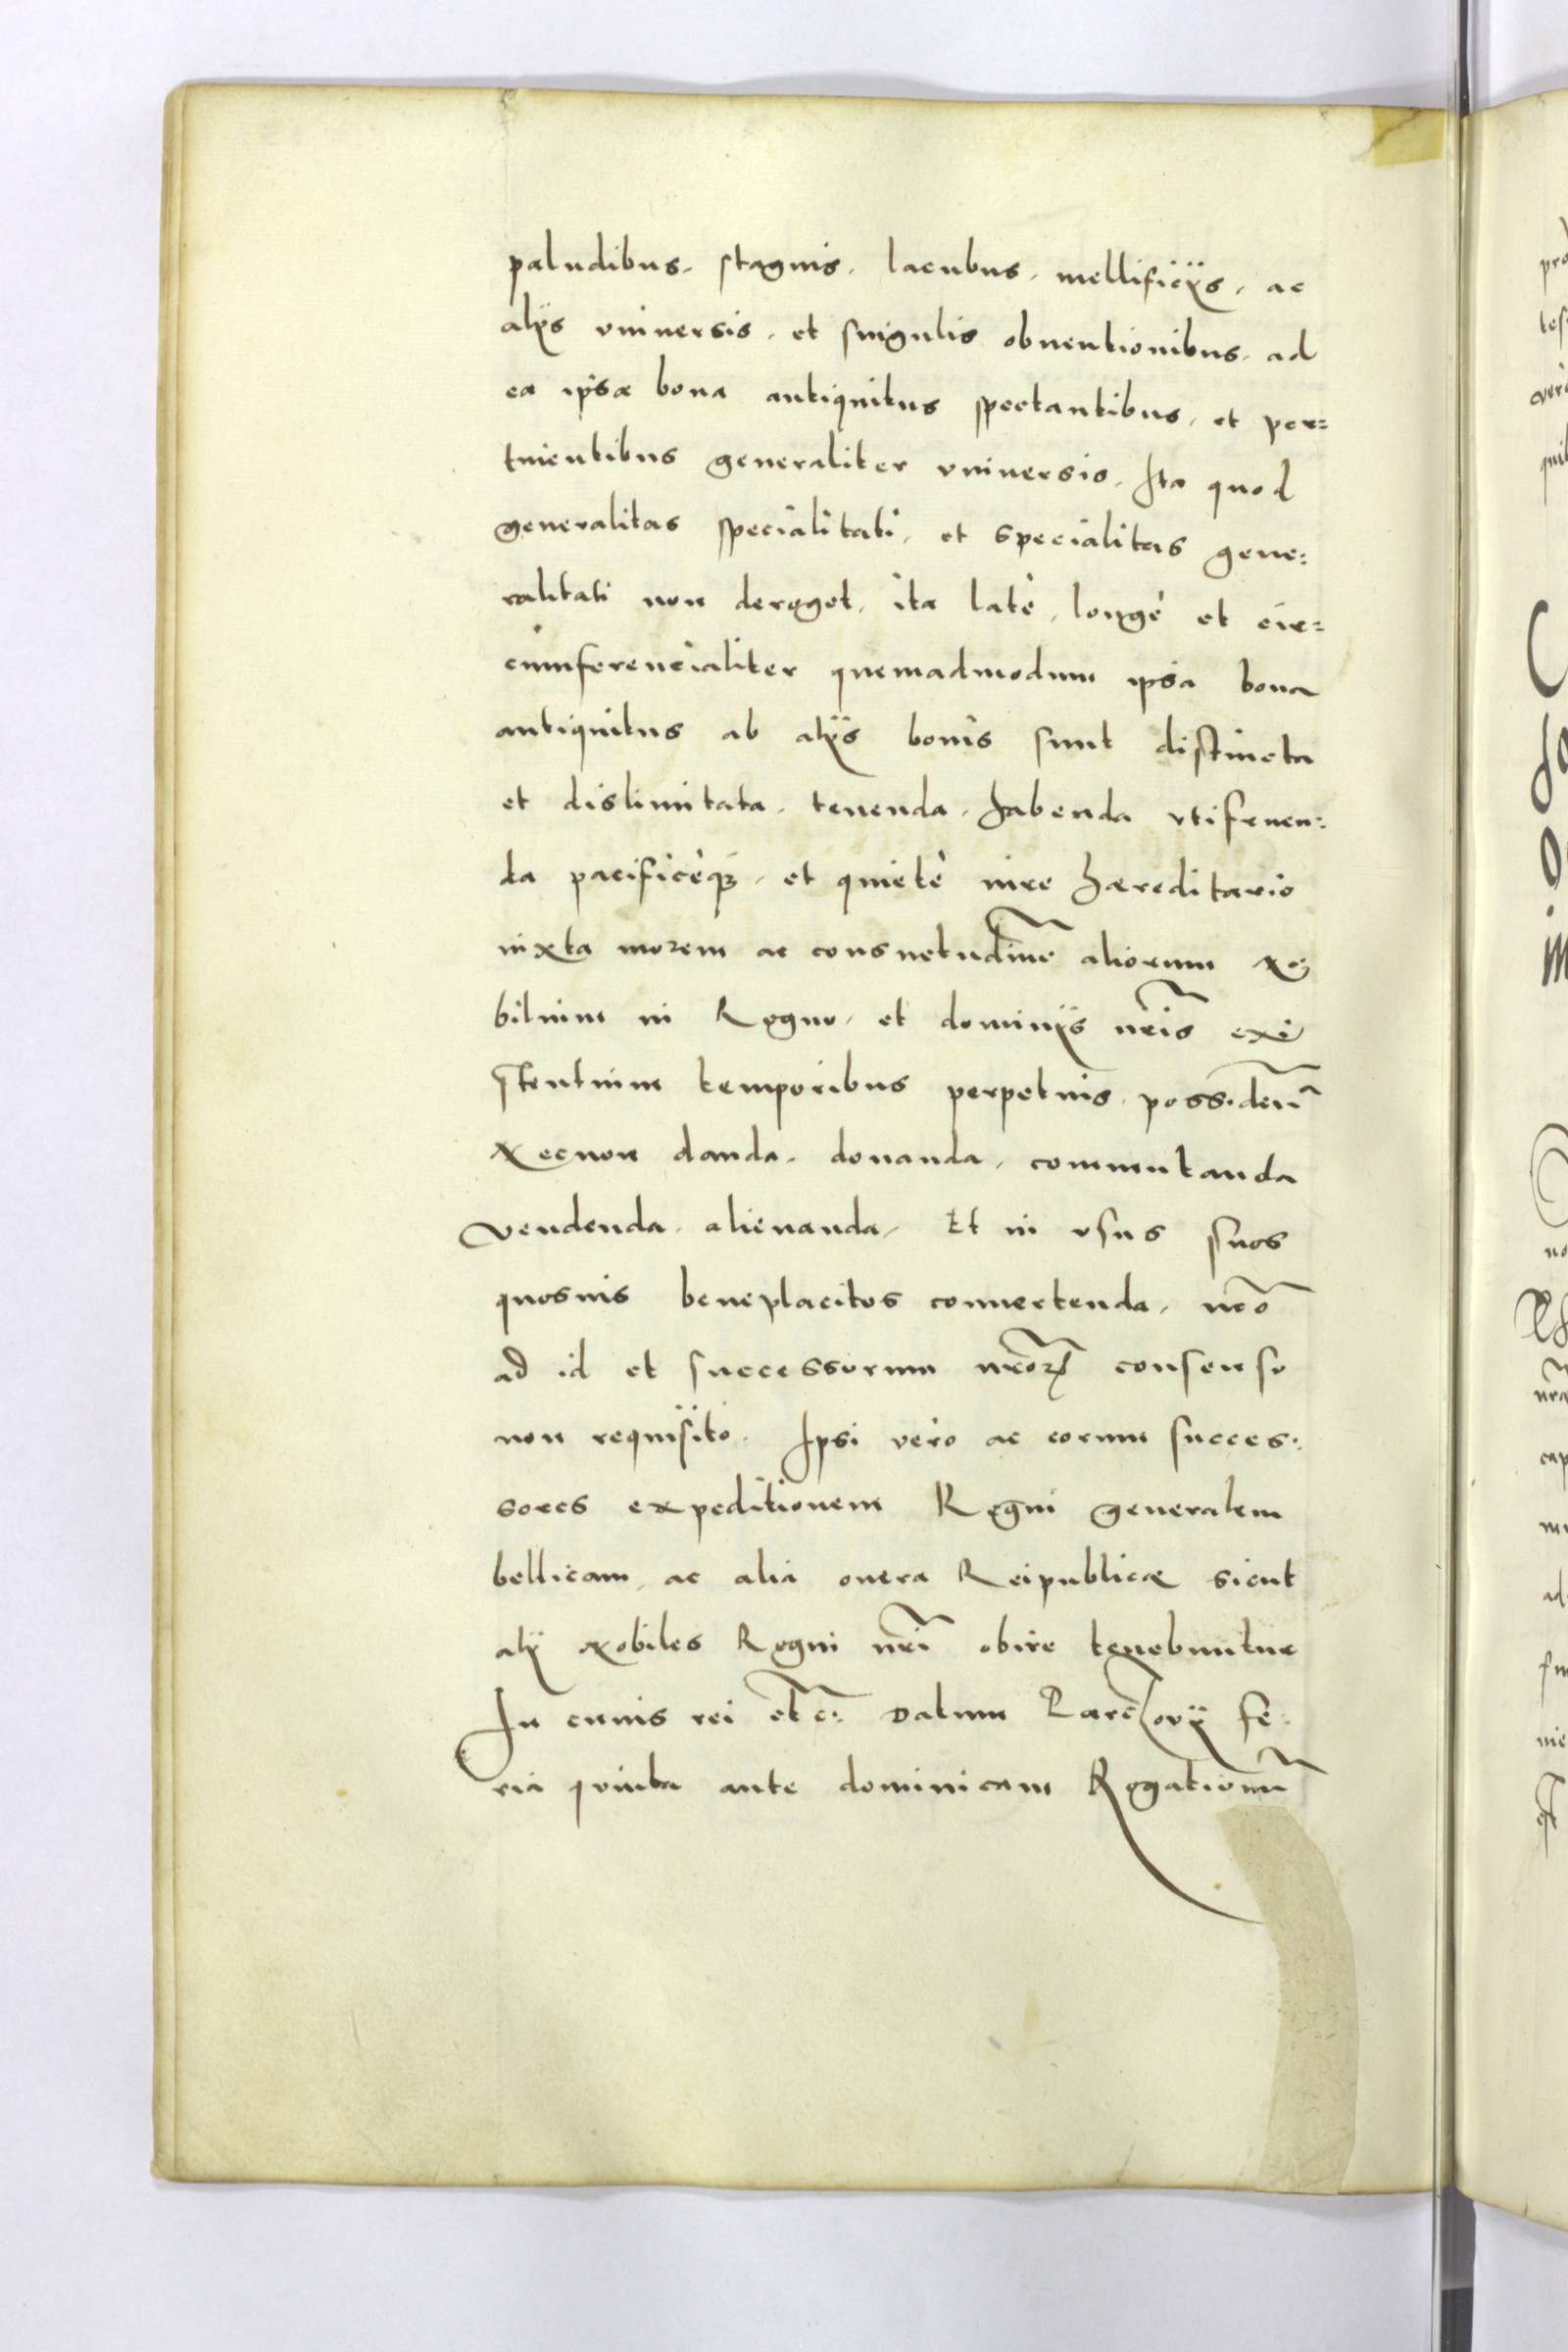 paludibus. stagnis. lacubus. mellificijs. ac
alijs vniuersis. et singulis obuentionibus. ad
ea ipsa bona antiquitus spectantibus. et per=
tinentibus generaliter vniuersis. Ita quod
generalitas specialitati. et specialitas gene=
ralitati non deroget. ita latè. longè et cir=
cumferencialiter quemadmodum ipsa bona
antiquitus ab alijs bonis sunt distincta
et dislimitata. tenenda. habenda vtifruen=
da pacificèq3. et quietè iure haereditario
iuxta morem ac consuetudīne aliorum No
bilium in Regno. et dominijs nr̃is exi
stentium temporibus perpetuis. possiden̄
Necnon danda. donanda. commutanda
vendenda. alienanda. Et in vsus suos
quosuis beneplacitos conuertenda. nr̃o
ad id et successorum nr̃orꝝ consensu
non requisito. Ipsi vero ac eorum succes=
sores expeditionem Regni generalem
bellicam. ac alia onera Reipublicae sicut
alij Nobiles Regni nr̃i obire tenebuntur
In cuius rei etc: Datum Parczovij fe
ria quinta ante dominicam Rogationū